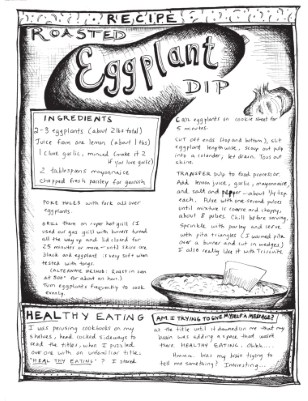 RECIPE
ROASTED
Eggplant
DIP
INGREDIENTS
2-3 eggplants (about 2 lbs total)
Juice from one lemon (about 1 tbs)
1 clove garlic, minced (make it 2
if you love garlic)
2 tablespoons mayonnaise
Chopped fresh parsley for garnish
POKE HOLES with fork all over
eggplants.
GRILL them on super hot grill (I
used our gas grill with burners turned
all the way up and lid closed for
25 minutes or more - until skins are
black and eggplant is very soft when
tested with tongs.
(ALTERNATIVE METHOD: Roast in oven
at 500° for about an hour.)
Turn eggplants frequently to cook
evenly.
COOL eggplants on cookie sheet for
5 minutes.
CUT OFF ends (top and bottom), slit
eggplant lengthwise. Scoop out pulp
into a colander, let drain. Toss out
skins.
TRANSFER pulp to food processor.
Add lemon juice, garlic, mayonnaise,
and salt and pepper - about 1/4 tsp
each. Pulse with one-second pulses
until mixture is coarse and choppy,
about 8 pulses. Chill before serving.
Sprinkle with parsley and serve
with pita triangles (I warmed pita
over a burner and cut in wedges)
I also really like it with Triscuits.
HEALTHY EATING
I was perusing cookbooks on my
shelves, head cocked sideways to
read the titles, when I puzzled
over one with an unfamiliar title:
"HEAL THY EATING"? I stared
AM I TRYING TO GIVE MYSELF A MESSAGE?
at the title until it dawned on me that my
brain was adding a space that wasn't
there. HEALTHY EATING. Ohhh...
Hmmm. Was my brain trying to
tell me something? Interesting...